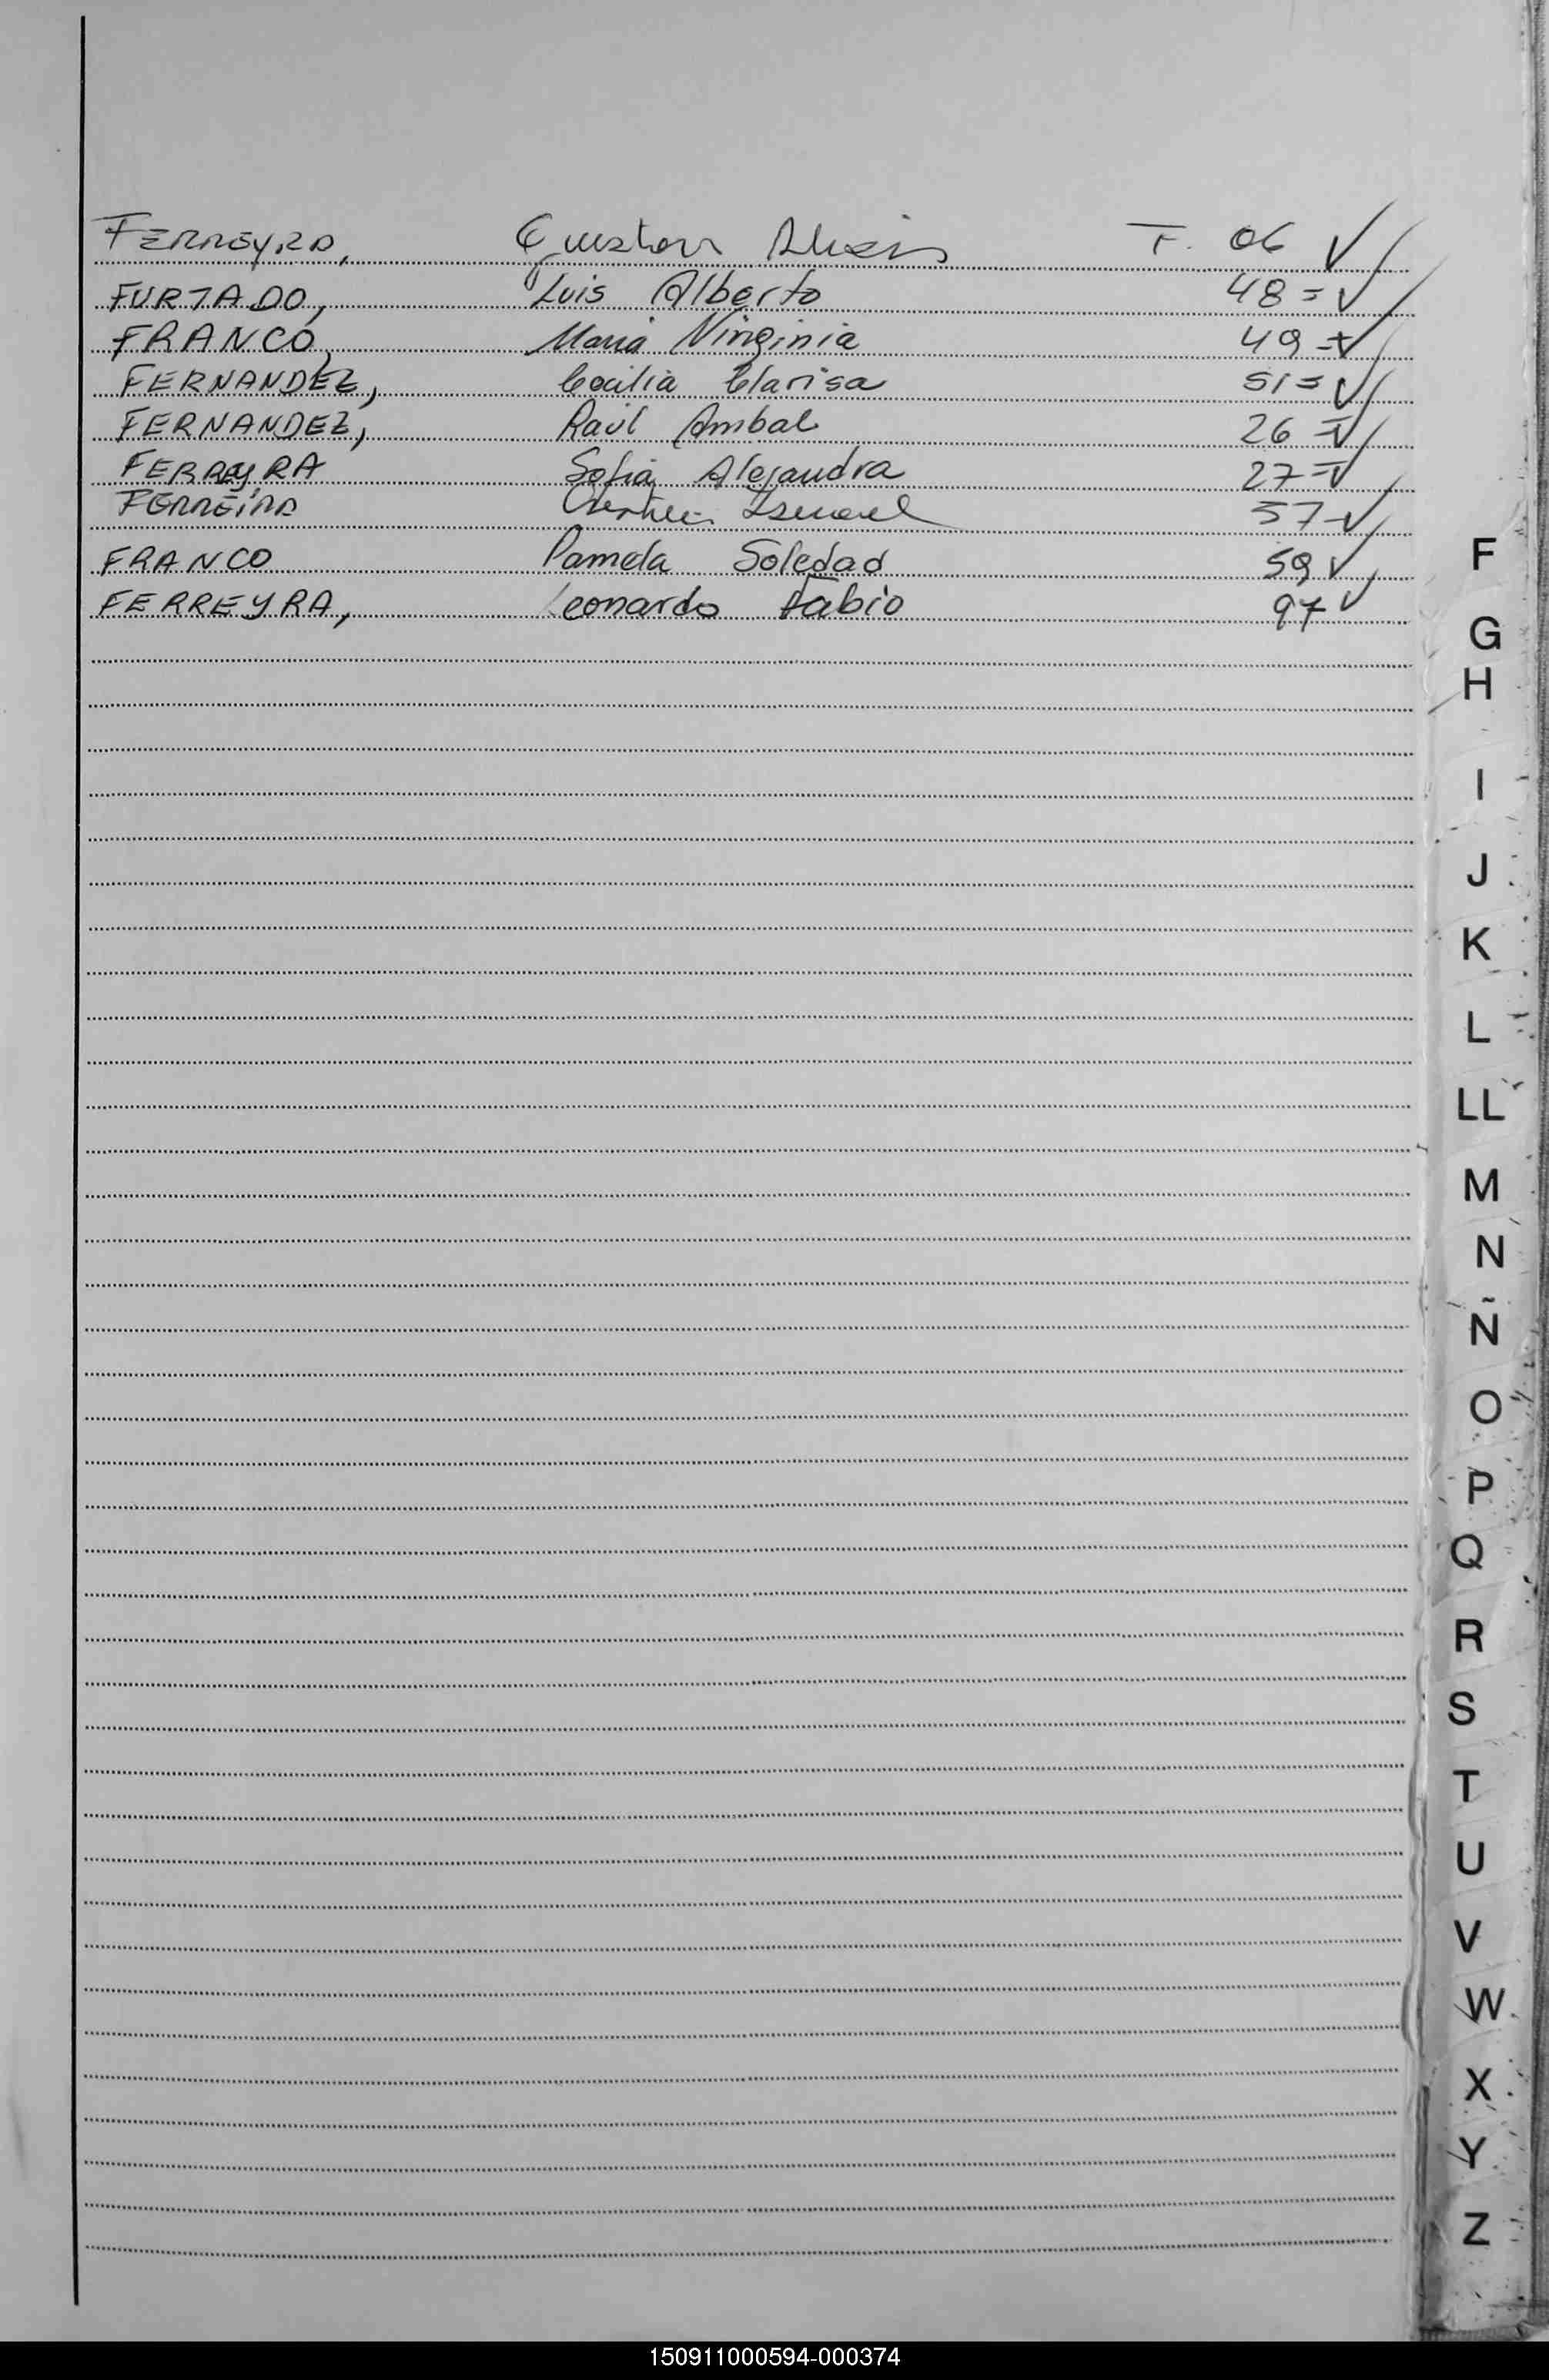 FERREYRA, Gustavo Alexis F. 06 ✓
FURTADO, Luis Alberto 48 = ✓
FRANCO, Maria Virginia 49 = ✓
FERNANDEZ, Cecilia Clarisa 51 = ✓
FERNANDEZ, Raúl Anibal 26 = ✓
FERREYRA Sofia Alejandra 27 = ✓
FERREIRA Ismael 57 - ✓
FRANCO Pamela Soledad 59 ✓
FERREYRA, Leonardo Fabio 97 ✓
F
G
H
I
J
K
L
LL
M
N
Ñ
O
P
Q
R
S
T
U
V
W
X
Y
Z
150911000594-000374